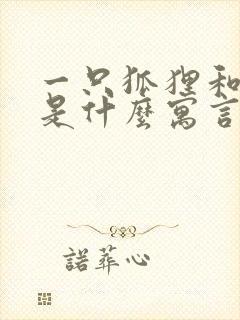 一只狐狸和
是什麼寓言
諾葬心